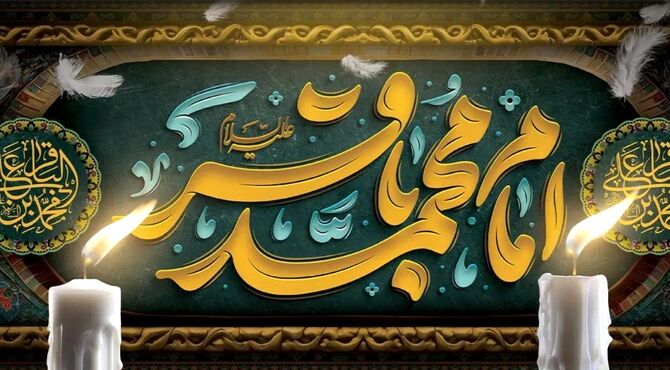 امام محمد باقر
علیه السلام
محمد بن علی الباقر
محمد بن علی الباقر